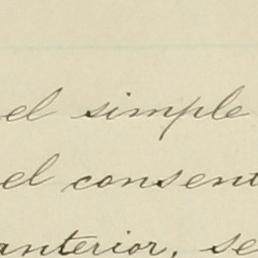 el simple
el consent
anterior, se